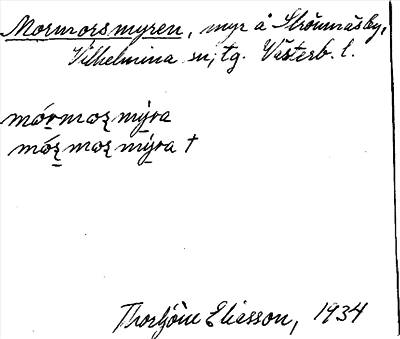 Mormorsmyren, myr å Strömnäsby,
Vilhelmina sn; tg. Västerb. l.
mórmoʂ mỳra
móʂmoʂ mỳra †
Thorbjörn Eliasson, 1934